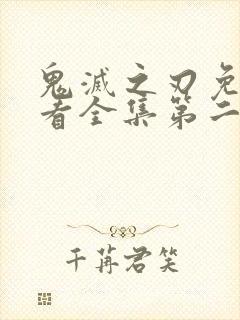 鬼滅之刃免
看全集第二
千苒君笑